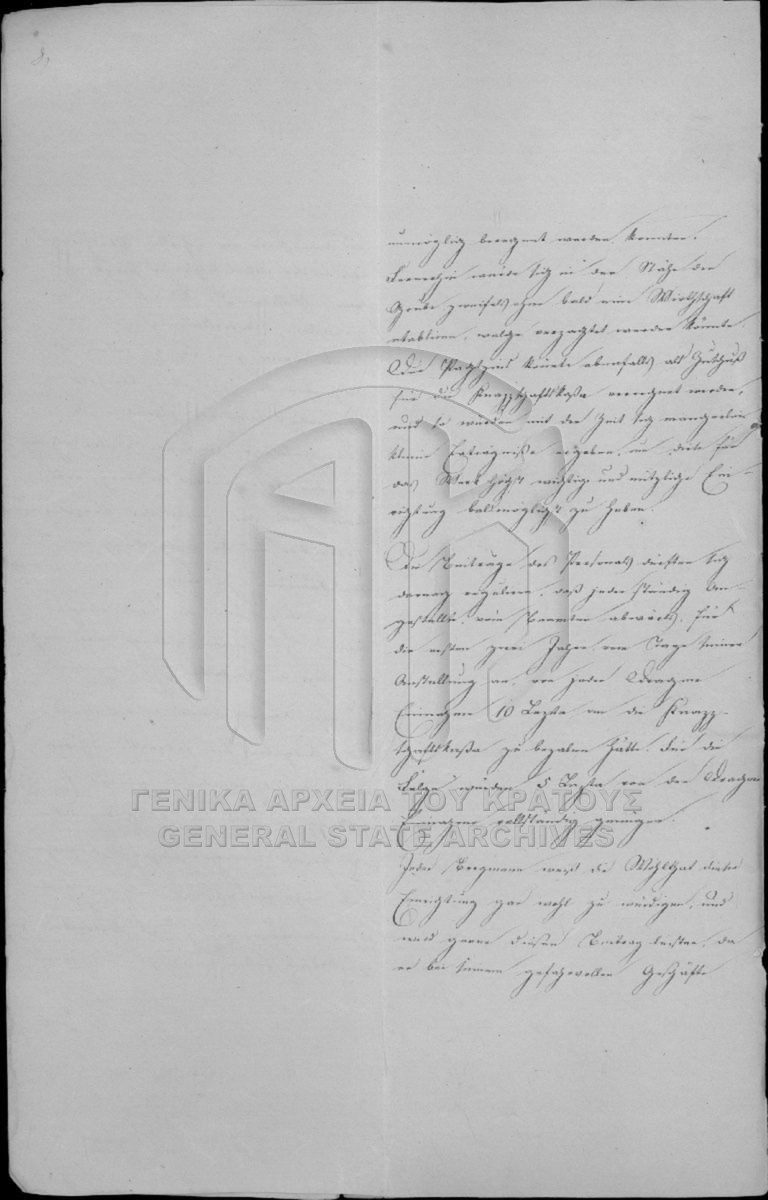 8,
unmöglich berechnet werden könnten.
Fernerhin würde sich in der Nähe der
Grube zweifelsohne bald eine Wirthschaft
etabliren, welche verpachtet werden könnte.
Der Pachtzins könnte ebenfalls als Zuschuß
für die Knappschaftskaßa verrechnet werden,
und so würden mit der Zeit sich mancherlei
kleine Erträgniße ergeben, um diese für
das Werk höchst wichtige und nützliche Ein-
richtung baldmöglichst zu haben.
Die Beiträge des Personals dürften sich
darnach reguliren, daß jeder ständig An-
gestellte, vom Beamten abwärts, für
die ersten zwei Jahre vom Tage seiner
Anstellung an, von jeder Drachme
Einnahme 10 Lepta an die Knapp-
schaftskaßa zu bezalen hätte. Für die
Folge würden 5 Lepta von der Drachme
Einnahme vollständig genügen.
Jeder Bergmann weiß die Wohlthat dieser
Einrichtung gar wohl zu würdigen, und
wird gerne diesen Beitrag leisten, da
er bei seinem gefahrvollen Geschäfte
ΓΕΝΙΚΑ ΑΡΧΕΙΑ ΤΟΥ ΚΡΑΤΟΥΣ
GENERAL STATE ARCHIVES